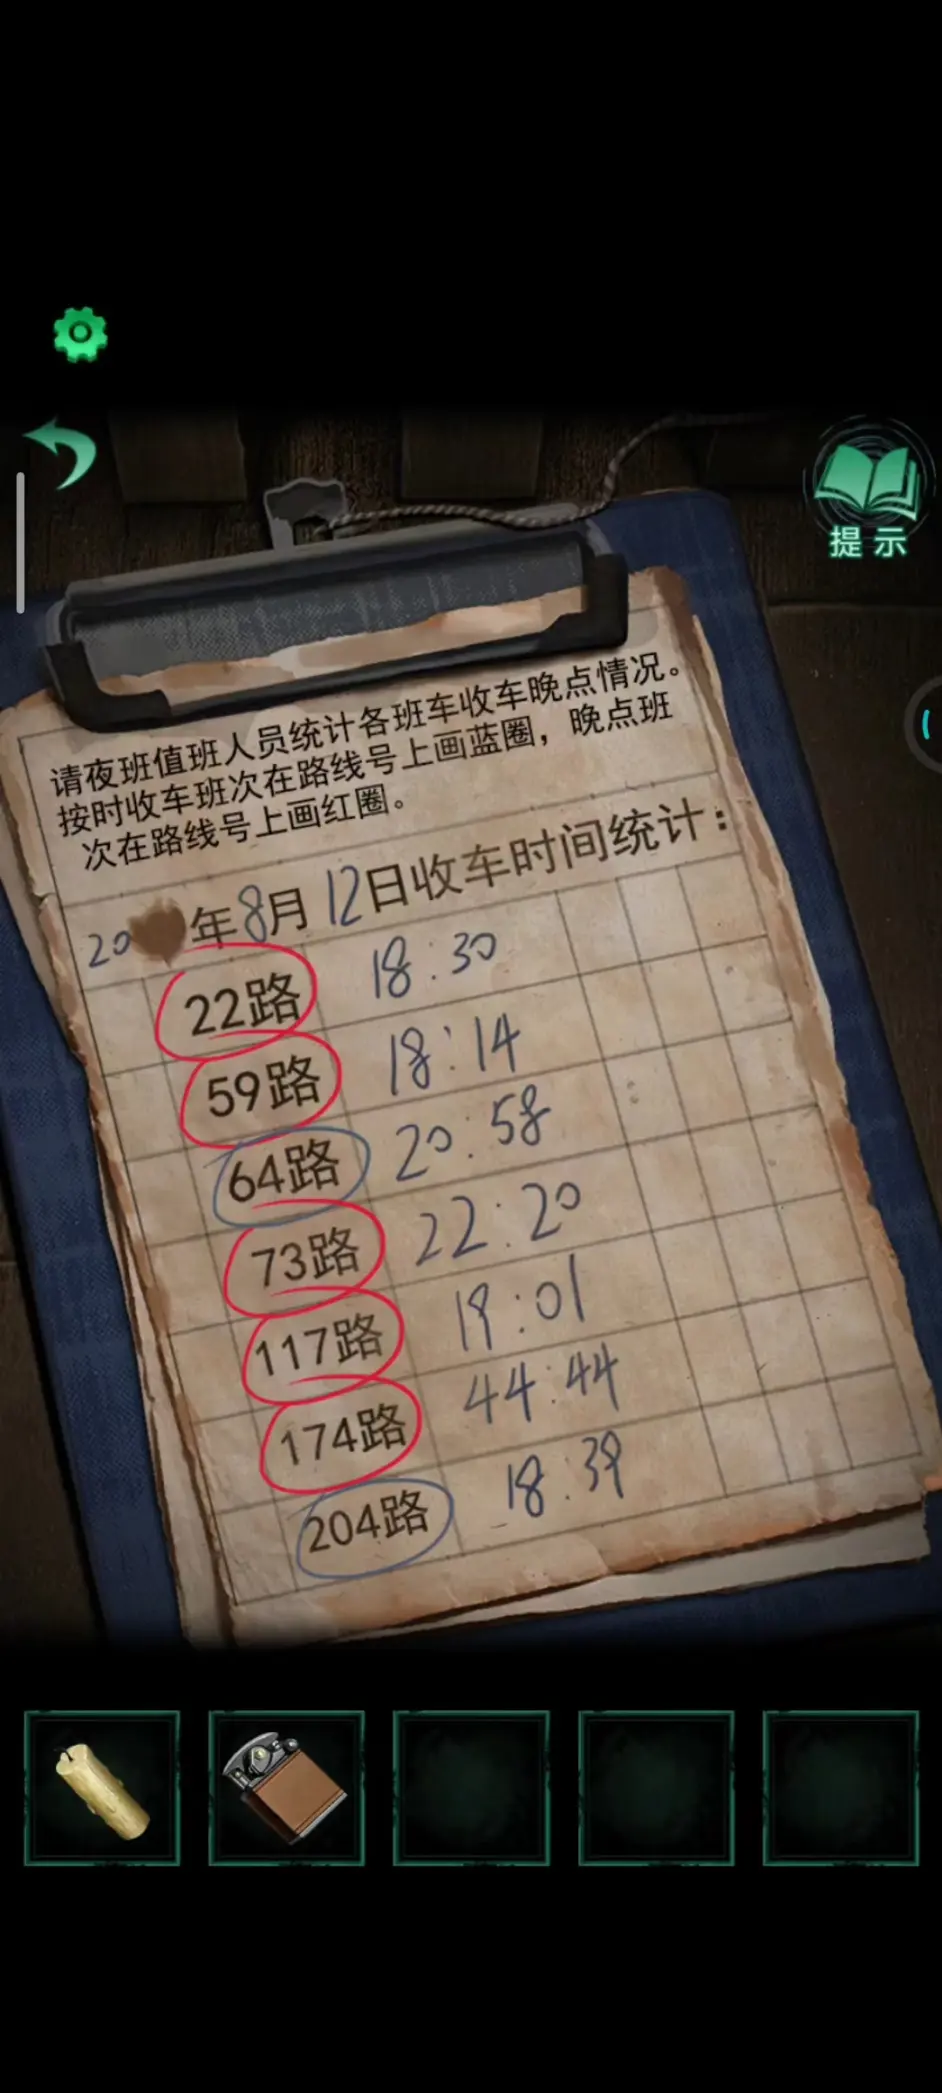 提示
请夜班值班人员统计各班车收车晚点情况。
按时收车班次在路线号上画蓝圈，晚点班
次在路线号上画红圈。
20年8月12日收车时间统计：
22路 18:30
59路 18:14
64路 20:58
73路 22:20
117路 19:01
174路 44:44
204路 18:39